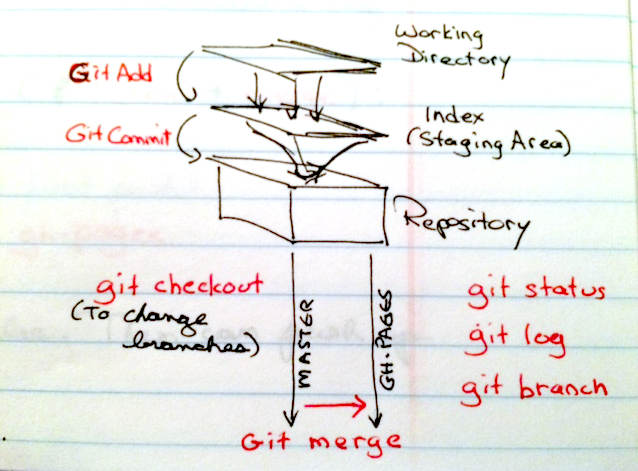 Working
Directory
Git Add
Index
(Staging Area)
Git Commit
Repository
git checkout
(To change
branches)
MASTER
GH-PAGES
git status
git log
git branch
Git merge
gh-pages